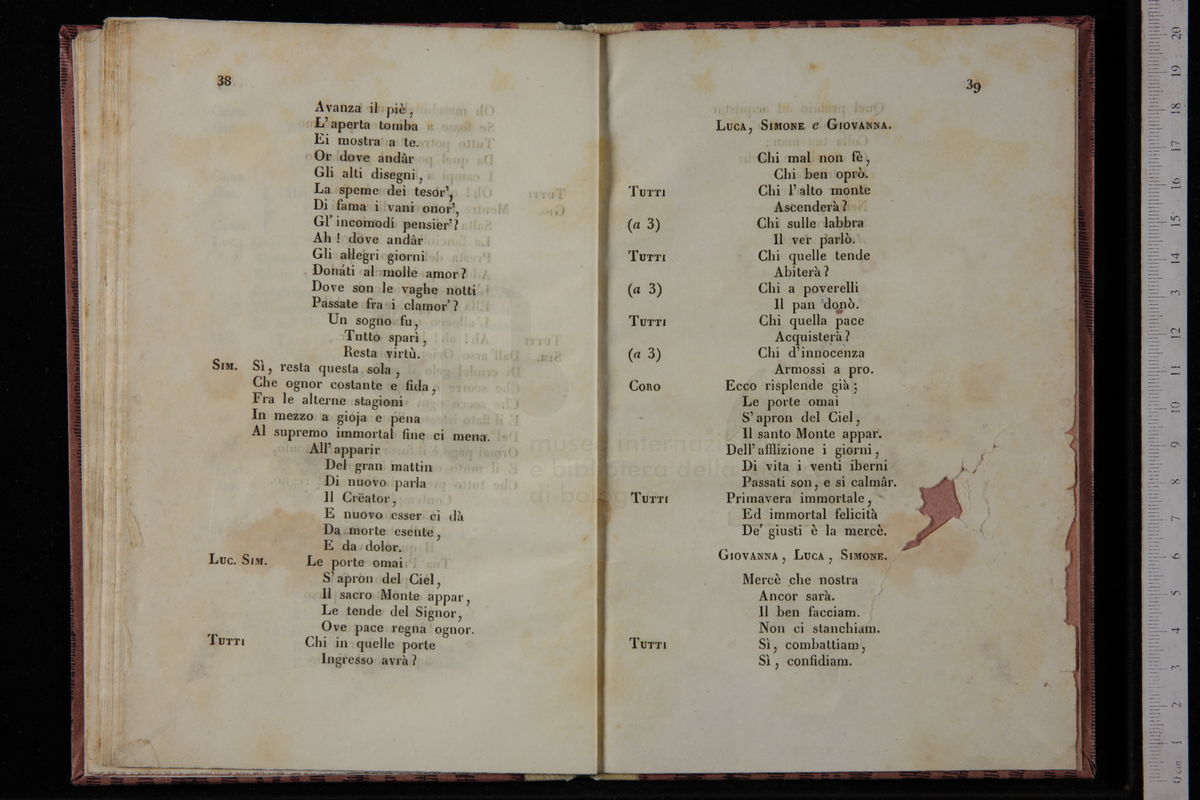 38
Avanza il piè,
L'aperta tomba
Ei mostra a te.
Or dove andâr
Gli alti disegni,
La speme dei tesor',
Di fama i vani onor',
Gl'incomodi pensier'?
Ah! dove andâr
Gli allegri giorni
Donáti al molle amor?
Dove son le vaghe notti
Passate fra i clamor'?
Un sogno fu,
Tutto sparì,
Resta virtù.
SIM. Sì, resta questa sola,
Che ognor costante e fida,
Fra le alterne stagioni
In mezzo a gioja e pena
Al supremo immortal fine ci mena.
All'apparir
Del gran mattin
Di nuovo parla
Il Crëator,
E nuovo esser ci dà
Da morte esente,
E da dolor.
LUC. SIM. Le porte omai
S'apron del Ciel,
Il sacro Monte appar,
Le tende del Signor,
Ove pace regna ognor.
TUTTI Chi in quelle porte
Ingresso avrà?
39
LUCA, SIMONE e GIOVANNA.
Chi mal non fè,
Chi ben oprò.
TUTTI Chi l'alto monte
Ascenderà?
(a 3) Chi sulle labbra
Il ver parlò.
TUTTI Chi quelle tende
Abiterà?
(a 3) Chi a poverelli
Il pan donò.
TUTTI Chi quella pace
Acquisterà?
(a 3) Chi d'innocenza
Armossi a pro.
CORO Ecco risplende già;
Le porte omai
S'apron del Ciel,
Il santo Monte appar.
Dell'afflizione i giorni,
Di vita i venti iberni
Passati son, e si calmâr.
TUTTI Primavera immortale,
Ed immortal felicità
De' giusti è la mercè.
GIOVANNA, LUCA, SIMONE.
Mercè che nostra
Ancor sarà.
Il ben facciam.
Non ci stanchiam.
TUTTI Sì, combattiam,
Sì, confidiam.
museo internazi
e biblioteca della
di bolog
0 cm 1 2 3 4 5 6 7 8 9 10 11 12 13 14 15 16 17 18 19 20